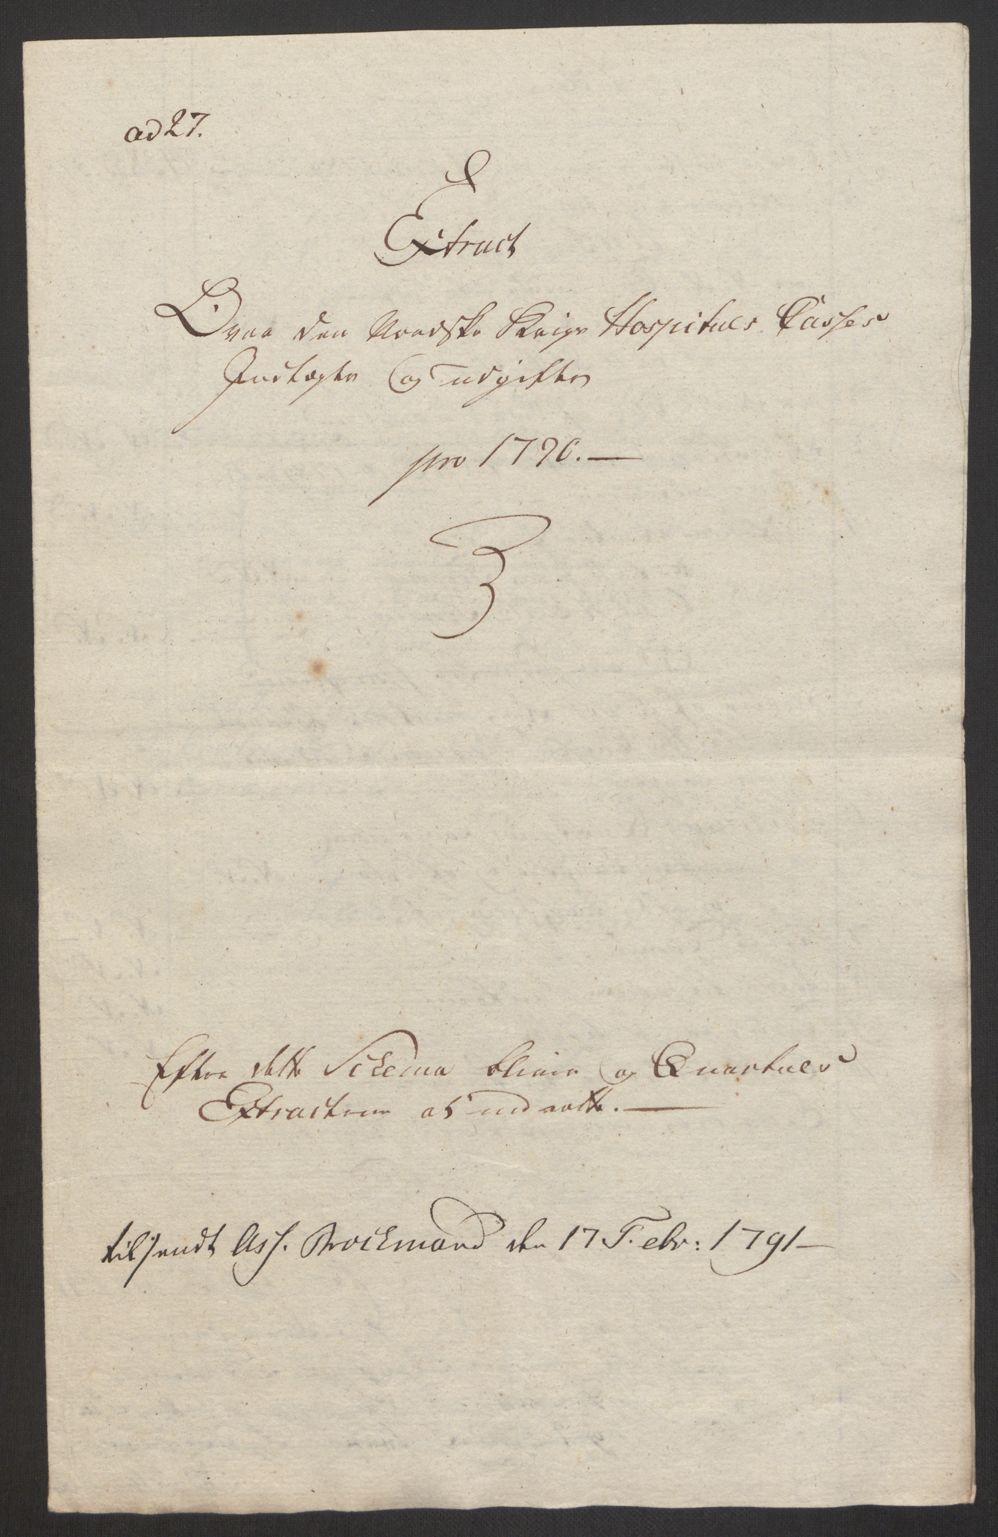 ad 27.
Extract
Over den Nordske Krigs Hospitals Casses
Indtægter og Udgifter
pro 1790.—
3
Efter dette Schema bliver og Quartals
Extracterne at indrette.—
tilsendt Ass. Brockmand den 17 Febr: 1791—